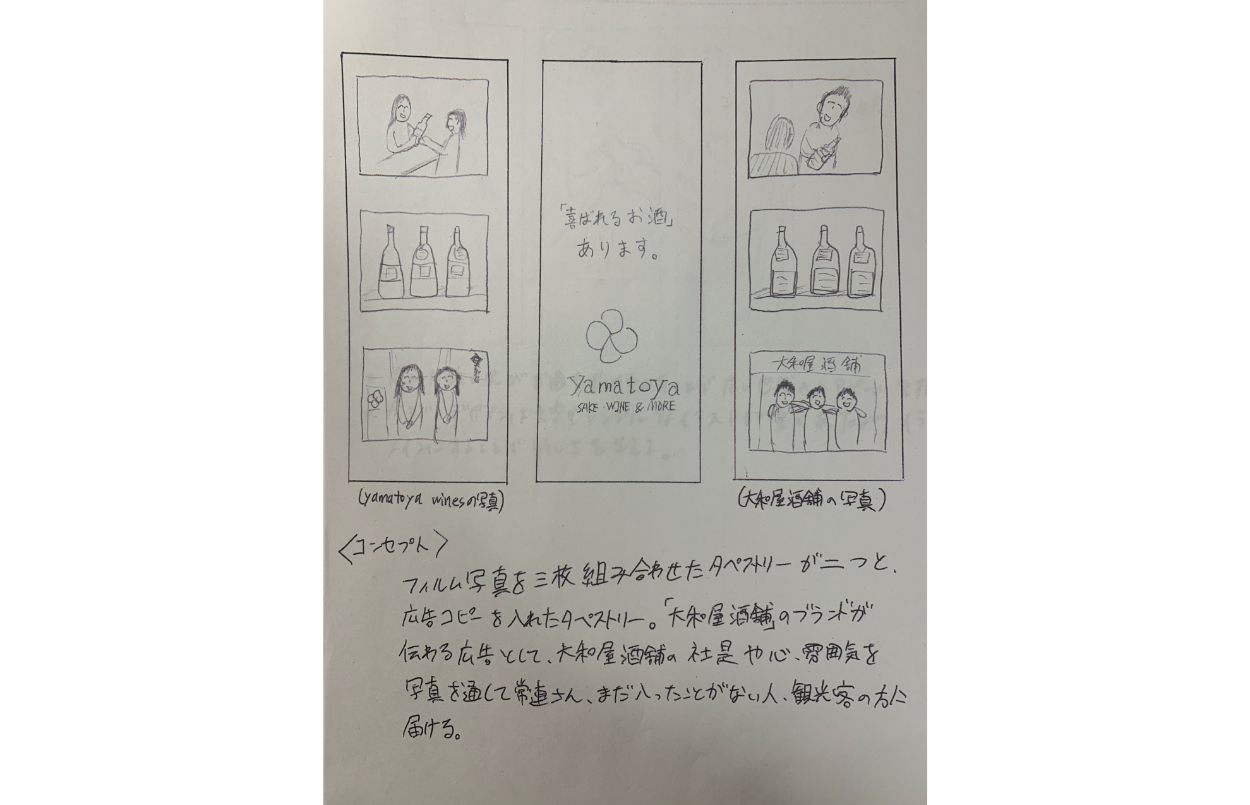 「喜ばれるお酒」
あります。
yamatoya
SAKE WINE & MORE
大和屋酒舗
(yamatoya winesの写真)
(大和屋酒舗の写真)
〈コンセプト〉
フィルム写真を三枚組み合わせたタペストリーが二つと、
広告コピーを入れたタペストリー。「大和屋酒舗」のブランドが
伝わる広告として、大和屋酒舗の社是や心、雰囲気を
写真を通して常連さん、まだ入ったことがない人、観光客の方に
届ける。